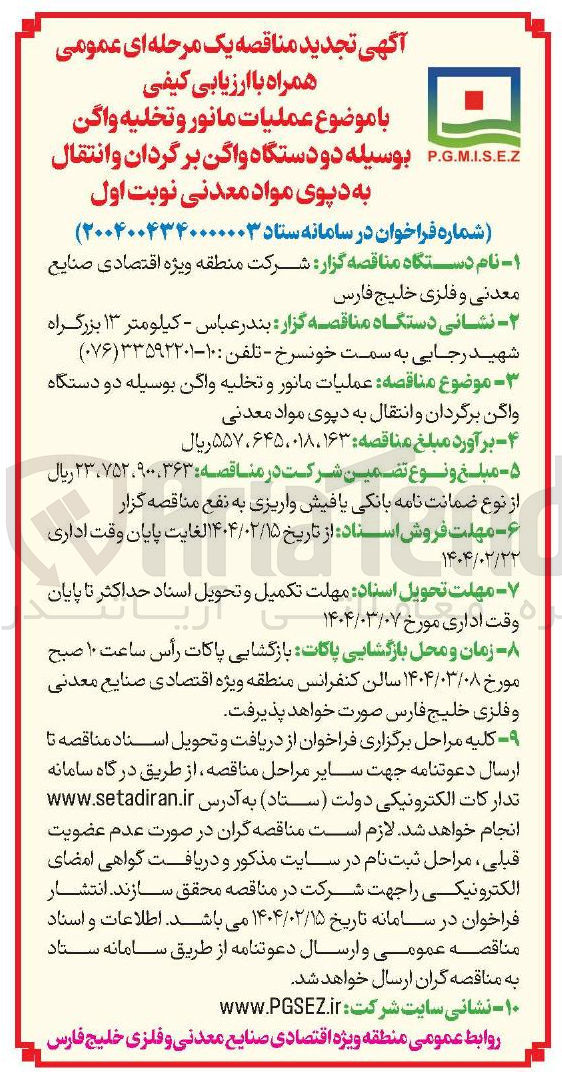 آگهی تجدید مناقصه یک مرحله ای عمومی
همراه با ارزیابی کیفی
با موضوع عملیات مانور و تخلیه واگن
بوسیله دو دستگاه واگن بر گردان و انتقال
به دپوی مواد معدنی نوبت اول
P.G.M.I.S.E.Z
(شماره فراخوان در سامانه ستاد ۲۰۰۴۰۰۴۳۴۰۰۰۰۰۰۳)
۱- نام دستگاه مناقصه گزار: شرکت منطقه ویژه اقتصادی صنایع
معدنی و فلزی خلیج فارس
۲- نشانی دستگاه مناقصه گزار: بندرعباس - کیلومتر ۱۳ بزرگراه
شهید رجایی به سمت خونسرخ - تلفن: ۱۰-۳۳۵۹۲۲۰۱ (۰۷۶)
۳- موضوع مناقصه: عملیات مانور و تخلیه واگن بوسیله دو دستگاه
واگن برگردان و انتقال به دپوی مواد معدنی
۴- برآورد مبلغ مناقصه: ۵۵۷،۶۴۵،۰۱۸،۱۶۳ ریال
۵- مبلغ و نوع تضمین شرکت در مناقصه: ۲۳،۷۵۲،۹۰۰،۳۶۳ ریال
از نوع ضمانت نامه بانکی یا فیش واریزی به نفع مناقصه گزار
۶- مهلت فروش اسناد: از تاریخ ۱۴۰۴/۰۲/۱۵ لغایت پایان وقت اداری
۱۴۰۴/۰۲/۲۲
۷- مهلت تحویل اسناد: مهلت تکمیل و تحویل اسناد حداکثر تا پایان
وقت اداری مورخ ۱۴۰۴/۰۳/۰۷
۸- زمان و محل بازگشایی پاکات: بازگشایی پاکات رأس ساعت ۱۰ صبح
مورخ ۱۴۰۴/۰۳/۰۸ سالن کنفرانس منطقه ویژه اقتصادی صنایع معدنی
و فلزی خلیج فارس صورت خواهد پذیرفت.
۹- کلیه مراحل برگزاری فراخوان از دریافت و تحویل اسناد مناقصه تا
ارسال دعوتنامه جهت سایر مراحل مناقصه، از طریق درگاه سامانه
تدارکات الکترونیکی دولت (ستاد) به آدرس www.setadiran.ir
انجام خواهد شد. لازم است مناقصه گران در صورت عدم عضویت
قبلی، مراحل ثبت نام در سایت مذکور و دریافت گواهی امضای
الکترونیکی را جهت شرکت در مناقصه محقق سازند. انتشار
فراخوان در سامانه تاریخ ۱۴۰۴/۰۲/۱۵ می باشد. اطلاعات و اسناد
مناقصه عمومی و ارسال دعوتنامه از طریق سامانه ستاد
به مناقصه گران ارسال خواهد شد.
۱۰- نشانی سایت شرکت: www.PGSEZ.ir
روابط عمومی منطقه ویژه اقتصادی صنایع معدنی و فلزی خلیج فارس